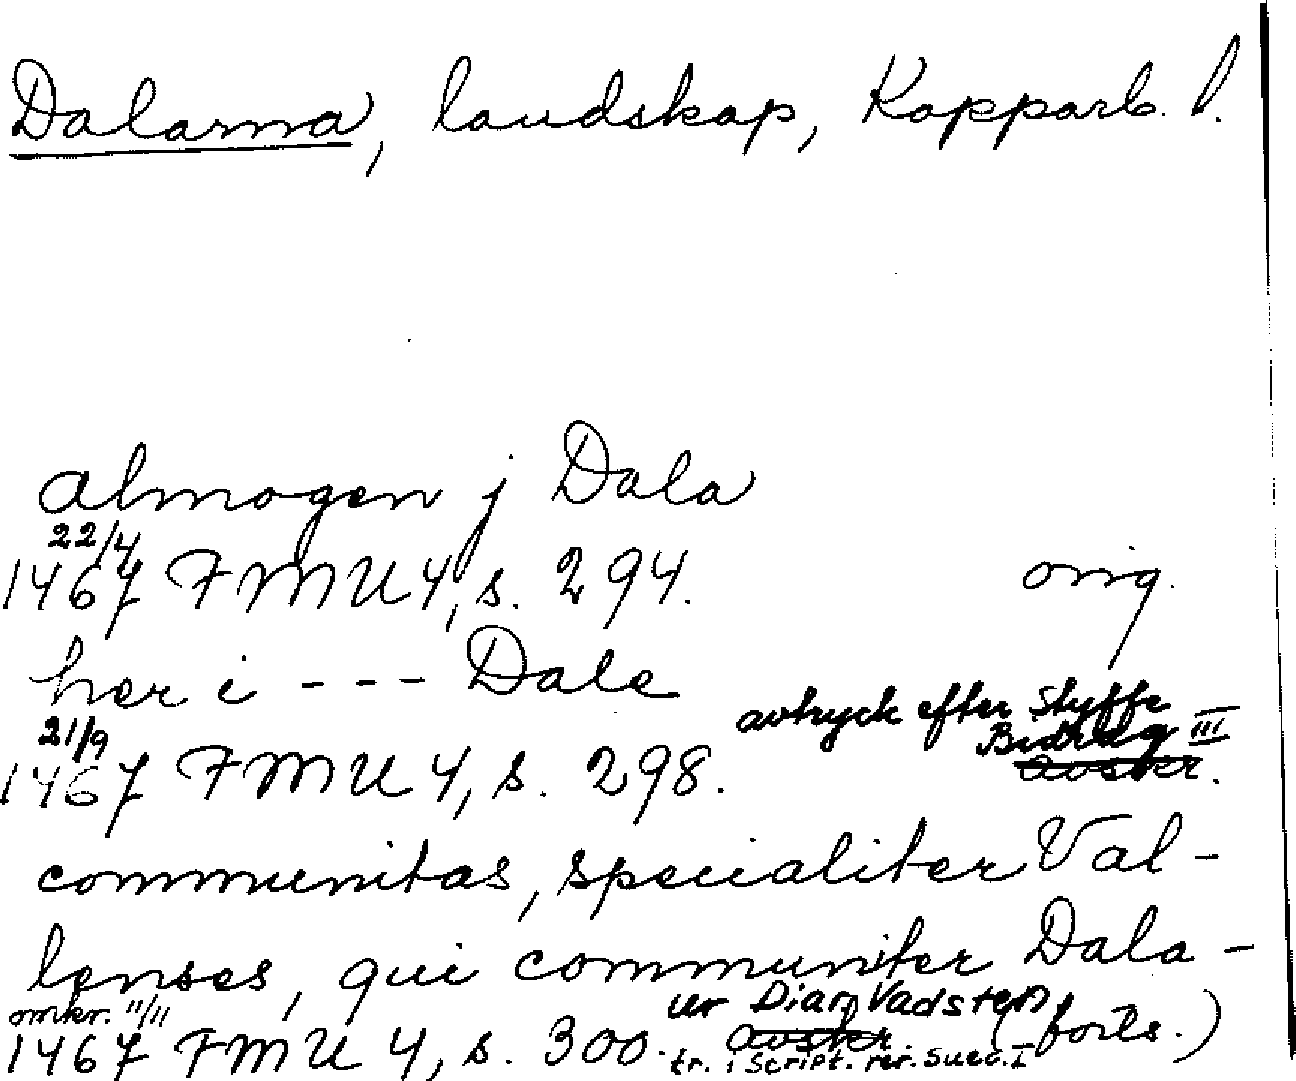 Dalarna, landskap, Kopparb. l.
almogen j Dala
22/4
1467 FMU 4, s. 294. orig.
her i --- Dale
avtryck efter Styffe
21/9 Bidrag III
1467 FMU 4, s. 298. avskr.
communitas, specialiter Val-
lenses, qui communiter Dala-
omkr. 11/11 ur Diar. Vadsten (forts.)
1467 FMU 4, s. 300. avskr.
tr. i Script. rer. suec. I